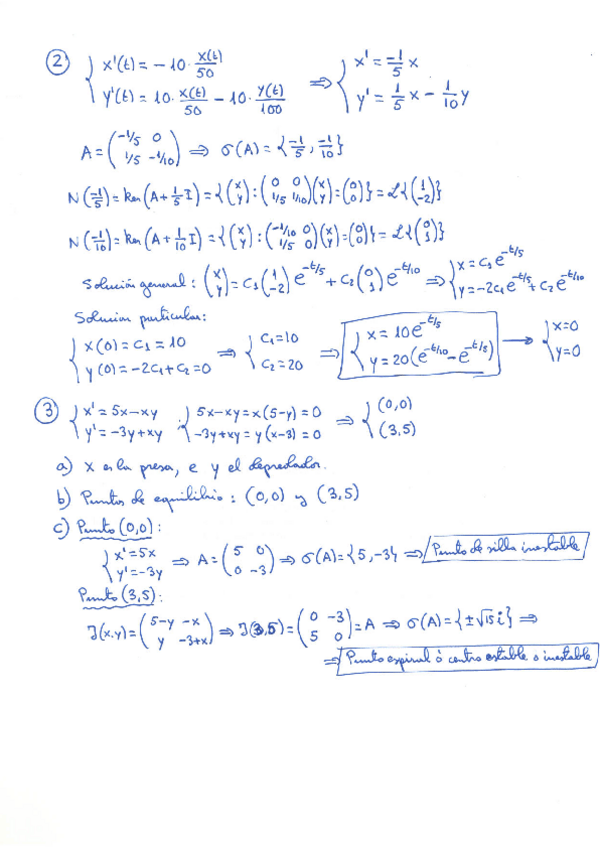 ② { x'(t) = −10 · x(t)/50 ; y'(t) = 10 · x(t)/50 − 10 · y(t)/100 ⇒ { x' = −1/5 x ; y' = 1/5 x − 1/10 y
A = (−1/5 0 ; 1/5 −1/10) ⇒ σ(A) = {−1/5, −1/10}
N(−1/5) = ker(A + 1/5 I) = {(x ; y) : (0 0 ; 1/5 1/10)(x ; y) = (0 ; 0)} = L{(1 ; −2)}
N(−1/10) = ker(A + 1/10 I) = {(x ; y) : (−1/10 0 ; 1/5 0)(x ; y) = (0 ; 0)} = L{(0 ; 1)}
Solución general : (x ; y) = C₁(1 ; −2) e^(−t/5) + C₂(0 ; 1) e^(−t/10) ⇒ { x = C₁e^(−t/5) ; y = −2C₁e^(−t/5) + C₂e^(−t/10)
Solución particular:
{ x(0) = C₁ = 10 ; y(0) = −2C₁ + C₂ = 0 ⇒ { C₁ = 10 ; C₂ = 20 ⇒ { x = 10e^(−t/5) ; y = 20(e^(−t/10) − e^(−t/5)) → { x = 0 ; y = 0
③ { x' = 5x − xy ; y' = −3y + xy . { 5x − xy = x(5−y) = 0 ; −3y + xy = y(x−3) = 0 ⇒ { (0,0) ; (3,5)
a) x es la presa, e y el depredador.
b) Puntos de equilibrio : (0,0) y (3,5)
c) Punto (0,0) :
{ x' = 5x ; y' = −3y ⇒ A = (5 0 ; 0 −3) ⇒ σ(A) = {5, −3} ⇒ Punto de silla inestable
Punto (3,5) :
J(x.y) = (5−y −x ; y −3+x) ⇒ J(3,5) = (0 −3 ; 5 0) = A ⇒ σ(A) = {±√15 i} ⇒
⇒ Punto espiral ó centro estable o inestable